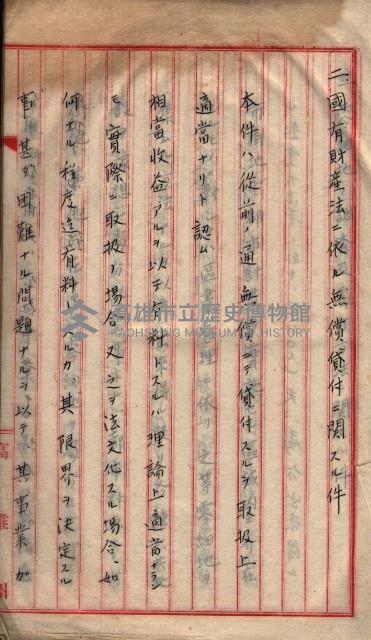 二、國有財産法ニ依ル無償貸付ニ関スル件
本件ハ從前ノ通無償ニテ貸付スルヲ取扱上
適當ナリト認ム
相當收益アルヲ以テ有料トスルハ理論上適當ナラン
モ實際ニ取扱ノ場合又之ヲ法文化スル場合、如
何ナル程度迄有料トスルカ其ノ限界ヲ決定スル
事甚ダ困難ナル問題ナルヲ以テ、其事業ガ
高雄州
高雄市立歷史博物館
KAOHSIUNG MUSEUM OF HISTORY